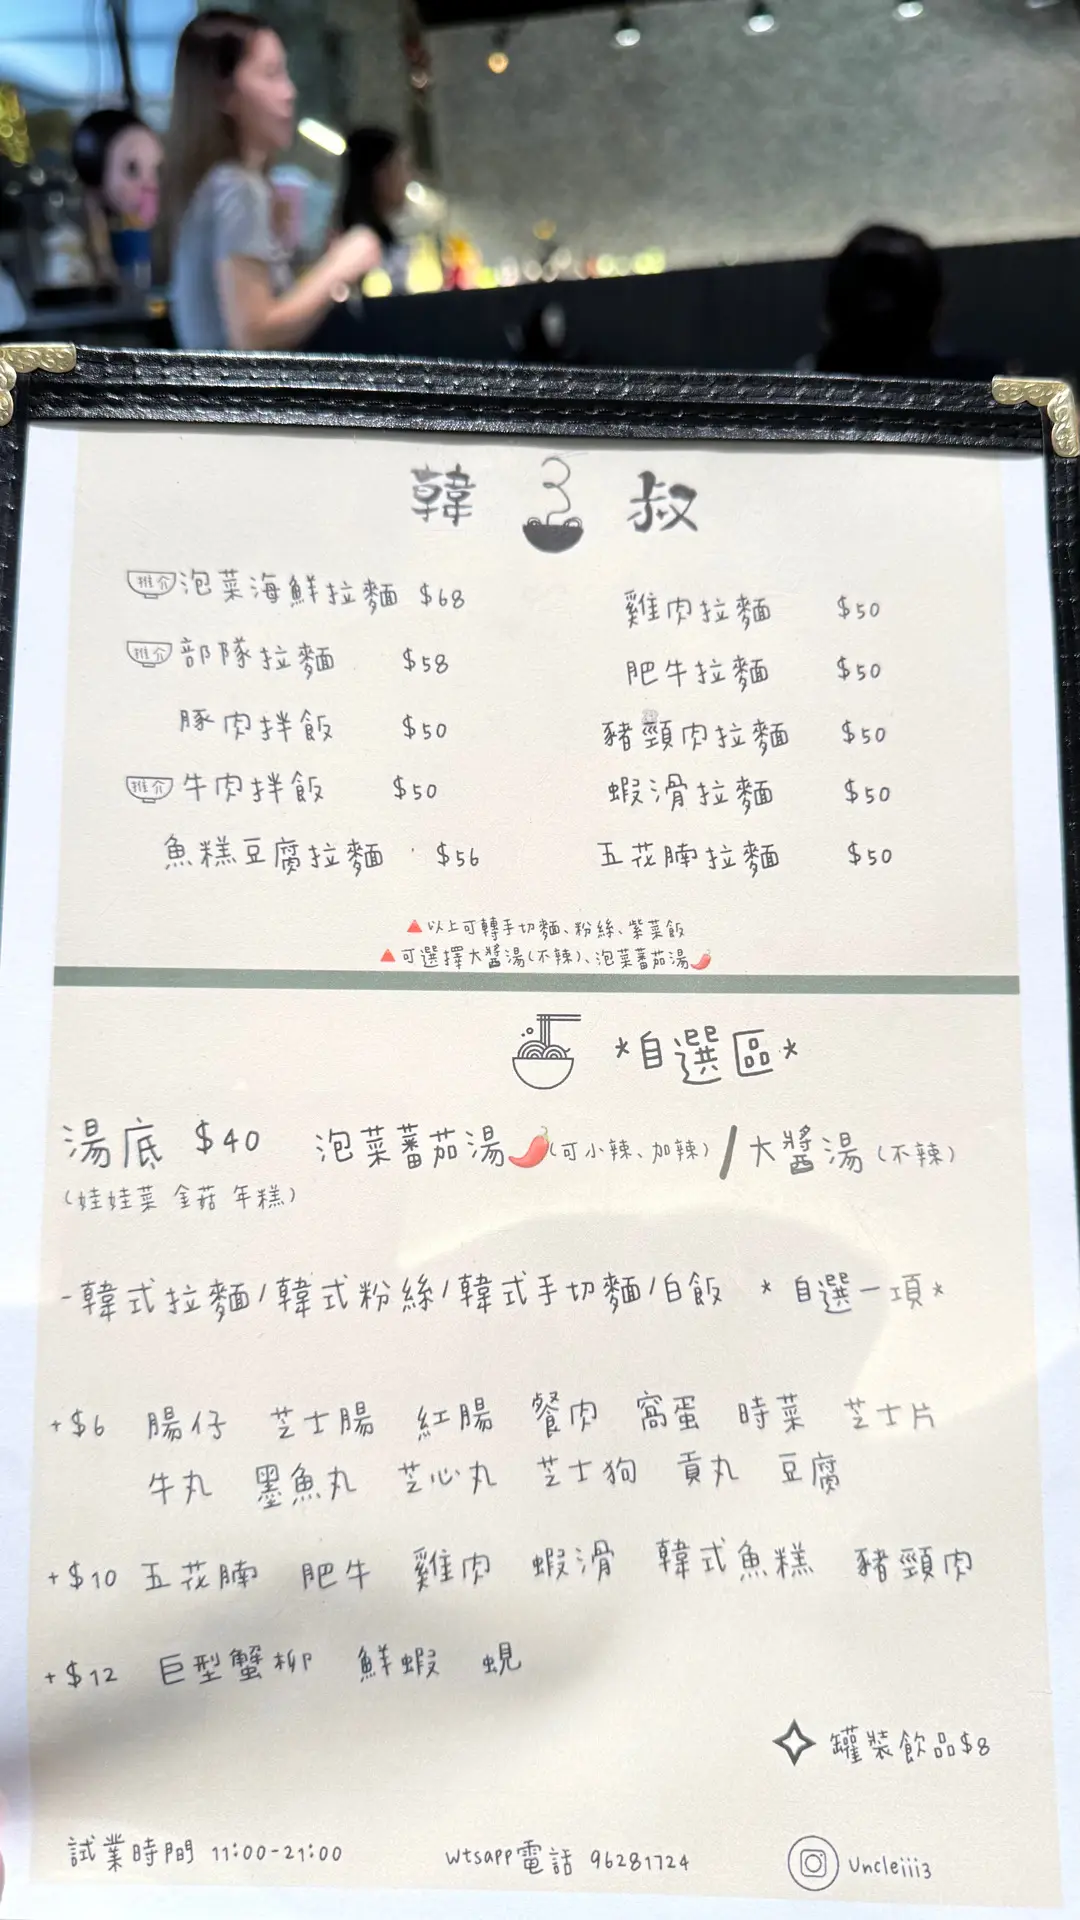 韓 3 叔
推介 泡菜海鮮拉麵 $68
推介 部隊拉麵 $58
豚肉拌飯 $50
推介 牛肉拌飯 $50
魚糕豆腐拉麵 $56
雞肉拉麵 $50
肥牛拉麵 $50
豬頸肉拉麵 $50
蝦滑拉麵 $50
五花腩拉麵 $50
🔺以上可轉手切麵、粉絲、紫菜飯
🔺可選擇大醬湯(不辣)、泡菜蕃茄湯🌶️
*自選區*
湯底 $40 泡菜蕃茄湯🌶️(可小辣、加辣) / 大醬湯 (不辣)
(娃娃菜 金菇 年糕)
-韓式拉麵/韓式粉絲/韓式手切麵/白飯 *自選一項*
+$6 腸仔 芝士腸 紅腸 餐肉 窩蛋 時菜 芝士片
牛丸 墨魚丸 芝心丸 芝士狗 貢丸 豆腐
+$10 五花腩 肥牛 雞肉 蝦滑 韓式魚糕 豬頸肉
+$12 巨型蟹柳 鮮蝦 蜆
罐裝飲品$8
試業時間 11:00-21:00 wtsapp電話 96281724 Uncleiii3